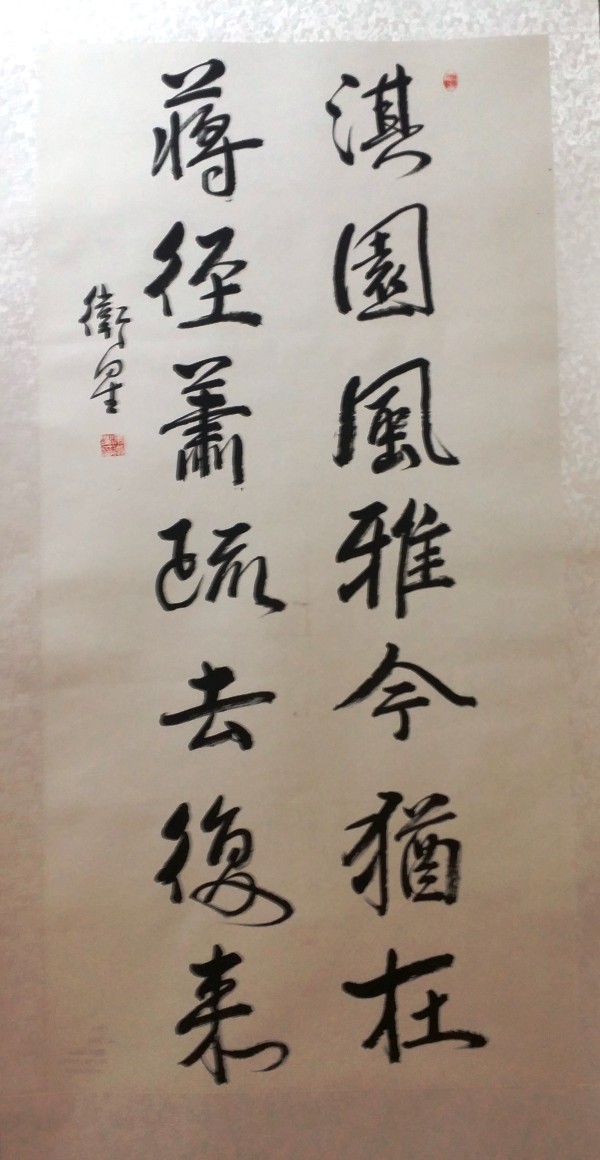 淇園風雅今猶在
蔣徑蕭疏去復來
衛星